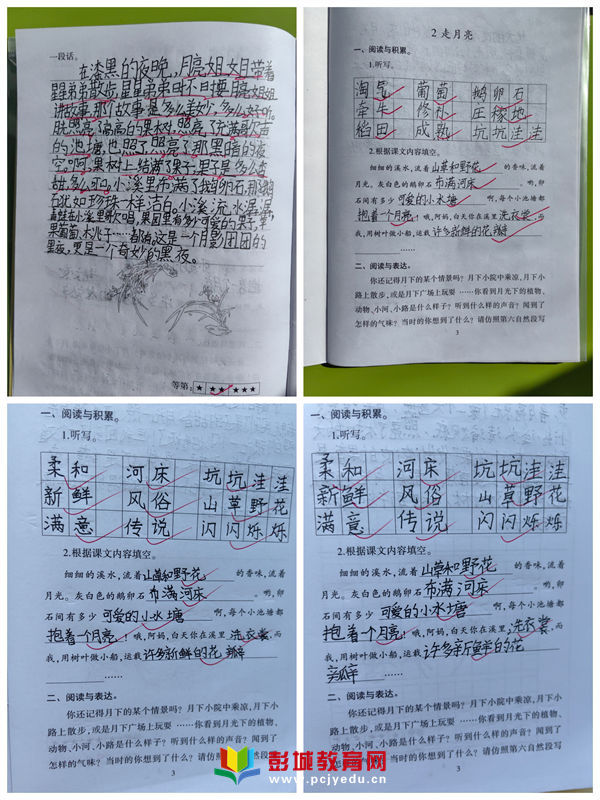 一段话。
在漆黑的夜晚,月亮姐姐带着
星星弟弟散步,星星弟弟时不时要月亮姐姐
讲故事,那个故事是多么美妙,多么好听。
的池塘,也照亮了那黑暗的夜
空。啊,果树上结满了果子,果子是多么香
甜,多么可口。小溪里布满了鹅卵石,那鹅卵
石犹如珍珠一样洁白。小溪流水
里夜,更是一个奇妙的黑夜。
等第:★ ★★ ★★★
2 走月亮
一、阅读与积累。
1.听写。
淘气 葡萄 鹅卵石
牵牛 修补 庄稼地
稻田 成熟 坑坑洼洼
2.根据课文内容填空。
细细的溪水,流着山草和野花的香味,流着
月光。灰白色的鹅卵石布满河床。哟,卵
石间有多少可爱的小水塘啊,每个小池塘都
抱着一个月亮!哦,阿妈,白天你在溪里洗衣裳,而
我,用树叶做小船,运载许多新鲜的花瓣
……
二、阅读与表达。
你还记得月下的某个情景吗?月下小院中乘凉,月下小
路上散步,或是月下广场上玩耍……你看到月光下的植物、
动物、小河、小路是什么样子?听到什么样的声音?闻到了
怎样的气味?当时的你想到了什么?请仿照第六自然段写
3
一、阅读与积累。
1.听写。
柔和 河床 坑坑洼洼
新鲜 风俗 山草野花
满意 传说 闪闪烁烁
2.根据课文内容填空。
细细的溪水,流着山草和野花的香味,流着
月光。灰白色的鹅卵石布满河床。哟,卵
石间有多少可爱的小水塘啊,每个小池塘都
抱着一个月亮!哦,阿妈,白天你在溪里洗衣裳,而
我,用树叶做小船,运载许多新鲜的花瓣
……
二、阅读与表达。
你还记得月下的某个情景吗?月下小院中乘凉,月下小
路上散步,或是月下广场上玩耍……你看到月光下的植物、
动物、小河、小路是什么样子?听到什么样的声音?闻到了
怎样的气味?当时的你想到了什么?请仿照第六自然段写
3
一、阅读与积累。
1.听写。
柔和 河床 坑坑洼洼
新鲜 风俗 山草野花
满意 传说 闪闪烁烁
2.根据课文内容填空。
细细的溪水,流着山草和野花的香味,流着
月光。灰白色的鹅卵石布满河床。哟,卵
石间有多少可爱的小水塘啊,每个小池塘都
抱着一个月亮!哦,阿妈,白天你在溪里洗衣裳,而
我,用树叶做小船,运载许多新鲜的花
瓣……
二、阅读与表达。
你还记得月下的某个情景吗?月下小院中乘凉,月下小
路上散步,或是月下广场上玩耍……你看到月光下的植物、
动物、小河、小路是什么样子?听到什么样的声音?闻到了
怎样的气味?当时的你想到了什么?请仿照第六自然段写
3
彭城教育网
www.pcjyedu.cn